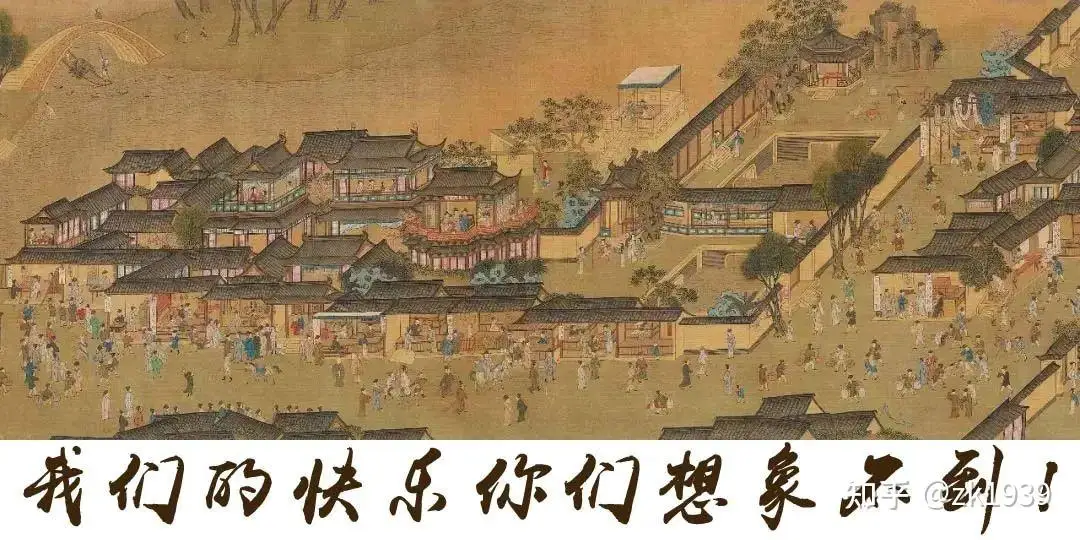 我们的快乐你们想象不到！
知乎 @zk1939